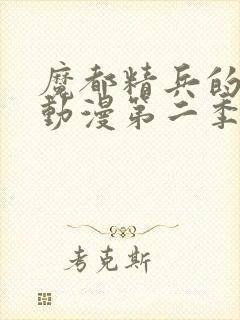 魔都精兵的
動漫第二季
考克斯